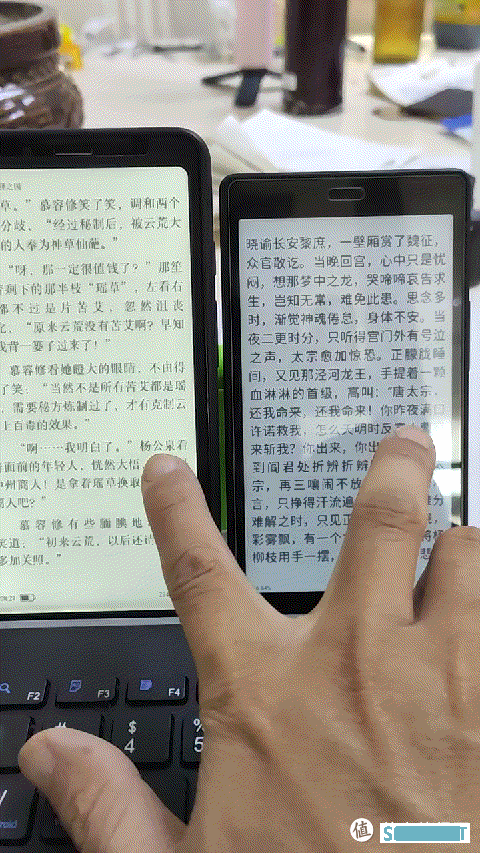 草。”慕容修笑了笑，调和两个
分歧，“经过秘制后，被云荒大
的人奉为神草仙葩。”
“呀，那一定很值钱了？”那笙
剩下的那半枝“瑶草”，左看右
都不过是片苦艾，忽然沮丧
“原来云荒没有苦艾啊？早知
我背一篓子过来了！”
慕容修看她瞪大的眼睛，不由得
了笑，“当然不是所有苦艾都是瑶
需要秘方炼制过了，才有克制云
上百毒的效果。”
“啊……我明白了。”杨公泉看
面前的年轻人，恍然大悟
州商人！是拿着瑶草换取
商人吧？”
慕容修有些腼腆地
笑道，“初来云荒，以后还请
多加关照。”
晓谕长安黎庶，一壁厢赏了魏征，
众官散讫。当晚回宫，心中只是忧
闷，想那梦中之龙，哭啼啼哀告求
生，岂知无常，难免此患。思念多
时，渐觉神魂倦怠，身体不安。当
夜二更时分，只听得宫门外有号泣
之声，太宗愈加惊恐。正朦胧睡
间，又见那泾河龙王，手提着一颗
血淋淋的首级，高叫：“唐太宗，
还我命来，还我命来！你昨夜满口
许诺救我，怎么天明时反
来斩我？你出来，你出
到阎君处折辨折辨
宗，再三嚷闹不放
言，只挣得汗流遍
难解之时，只见正
彩雾飘，有一个
柳枝用手一摆，
F2
F3
F4
#
$
4
%
5
值